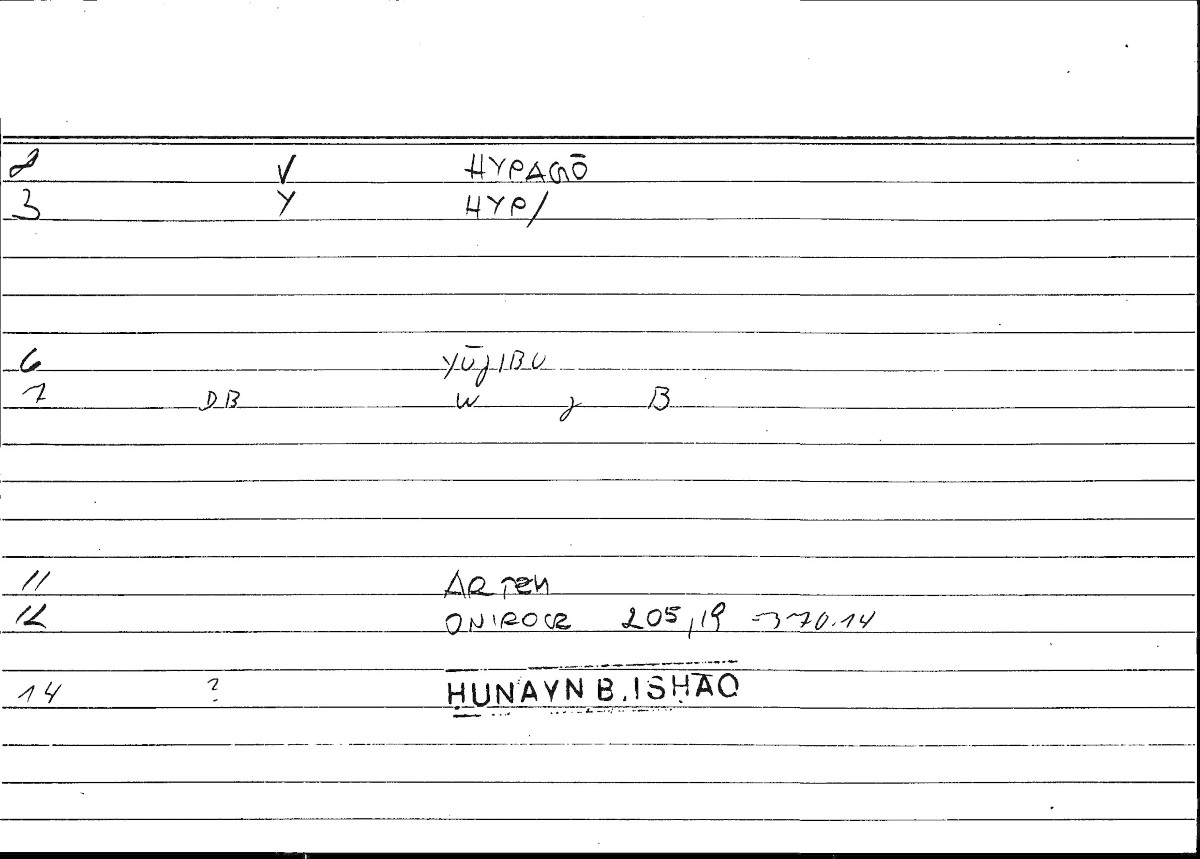 2 V HYPAGŌ
3 Y HYP/
6 YŪJIBU
7 DB W J B
11 ARTEM
12 ONIROCR 205,19 =370.14
14 ? ḤUNAYN B. ISḤĀQ